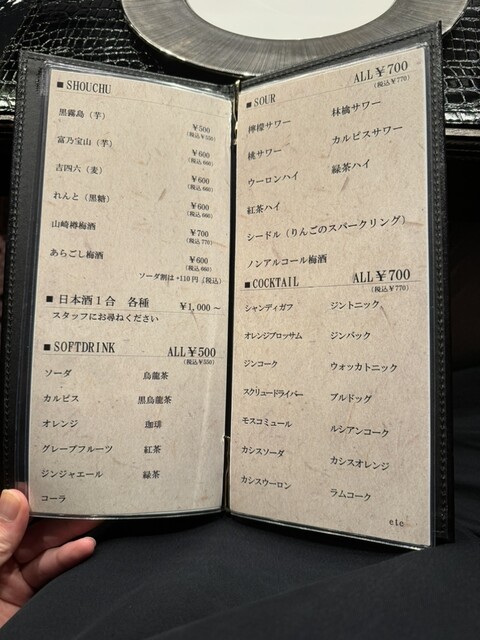 ■ SHOUCHU
黒霧島（芋）
¥500
(税込¥550)
富乃宝山（芋）
¥600
(税込660)
吉四六（麦）
¥600
(税込660)
れんと（黒糖）
¥600
(税込660)
山崎樽梅酒
¥700
(税込770)
あらごし梅酒
¥600
(税込660)
ソーダ割は+110円（税込）
■ 日本酒１合 各種 ¥1,000～
スタッフにお尋ねください
■ SOFTDRINK ALL¥500
(税込¥550)
ソーダ 烏龍茶
カルピス 黒烏龍茶
オレンジ 珈琲
グレープフルーツ 紅茶
ジンジャエール 緑茶
コーラ
■ SOUR ALL¥700
(税込¥770)
檸檬サワー 林檎サワー
桃サワー カルピスサワー
ウーロンハイ 緑茶ハイ
紅茶ハイ
シードル（りんごのスパークリング）
ノンアルコール梅酒
■COCKTAIL ALL¥700
(税込¥770)
シャンディガフ ジントニック
オレンジブロッサム ジンバック
ジンコーク ウォッカトニック
スクリュードライバー ブルドッグ
モスコミュール ルシアンコーク
カシスソーダ カシスオレンジ
カシスウーロン ラムコーク
etc